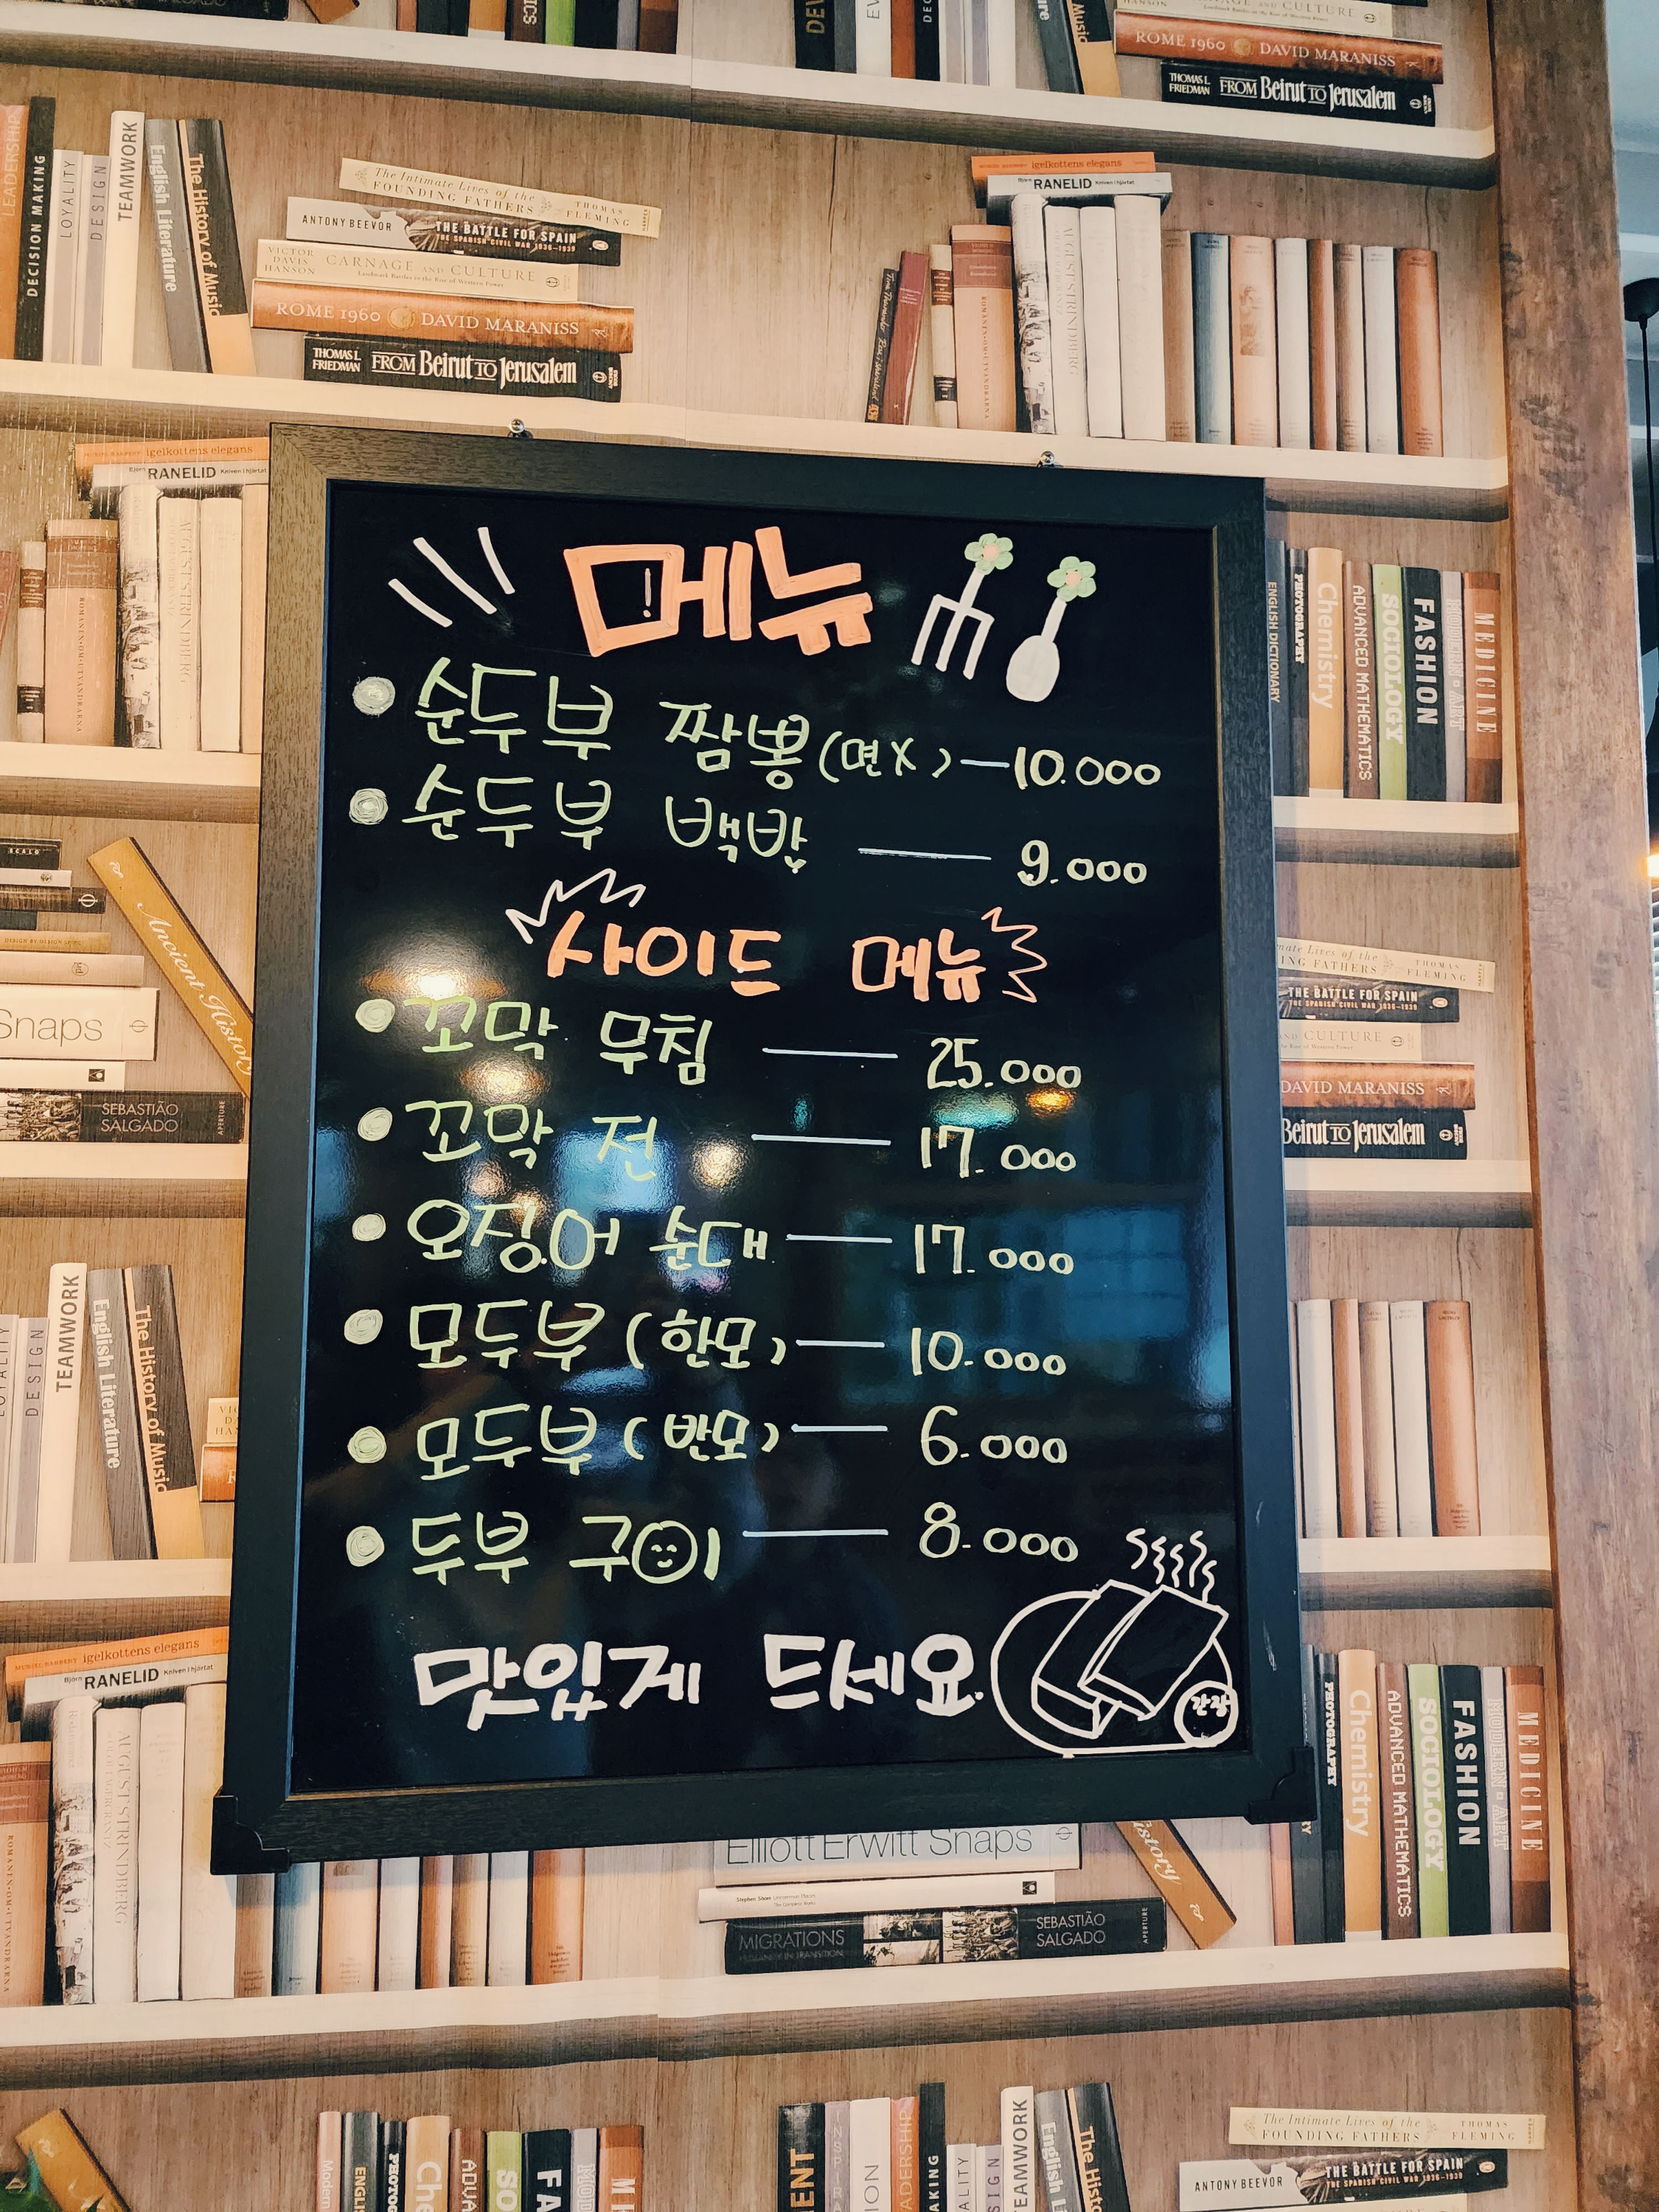 메뉴
순두부 짬뽕(면X)—10.000
순두부 백밥 — 9.000
사이드 메뉴
꼬막 무침 — 25.000
꼬막 전 — 17.000
오징어 순대 — 17.000
모두부 (한모) — 10.000
모두부 (반모) — 6.000
두부 구이 — 8.000
맛있게 드세요.
간장
DECISION MAKING
LOYALITY
DESIGN
TEAMWORK
English Literature
The History of Music
The Intimate Lives of the FOUNDING FATHERS THOMAS FLEMING
ANTONY BEEVOR THE BATTLE FOR SPAIN THE SPANISH CIVIL WAR 1936-1939
VICTOR DAVIS HANSON CARNAGE AND CULTURE Landmark Battles in the Rise of Western Power
ROME 1960 DAVID MARANISS
THOMAS L. FRIEDMAN FROM Beirut TO Jerusalem
igelkottens elegans
Björn RANELID Kniven i hjärtat
AUGUST STRINDBERG
ENGLISH DICTIONARY
PHOTOGRAPHY
Chemistry
ADVANCED MATHEMATICS
SOCIOLOGY
FASHION
MODERN ART
MEDICINE
Ancient History
Snaps
SEBASTIÃO SALGADO APERTURE
Elliott Erwitt Snaps
MIGRATIONS SEBASTIÃO SALGADO APERTURE